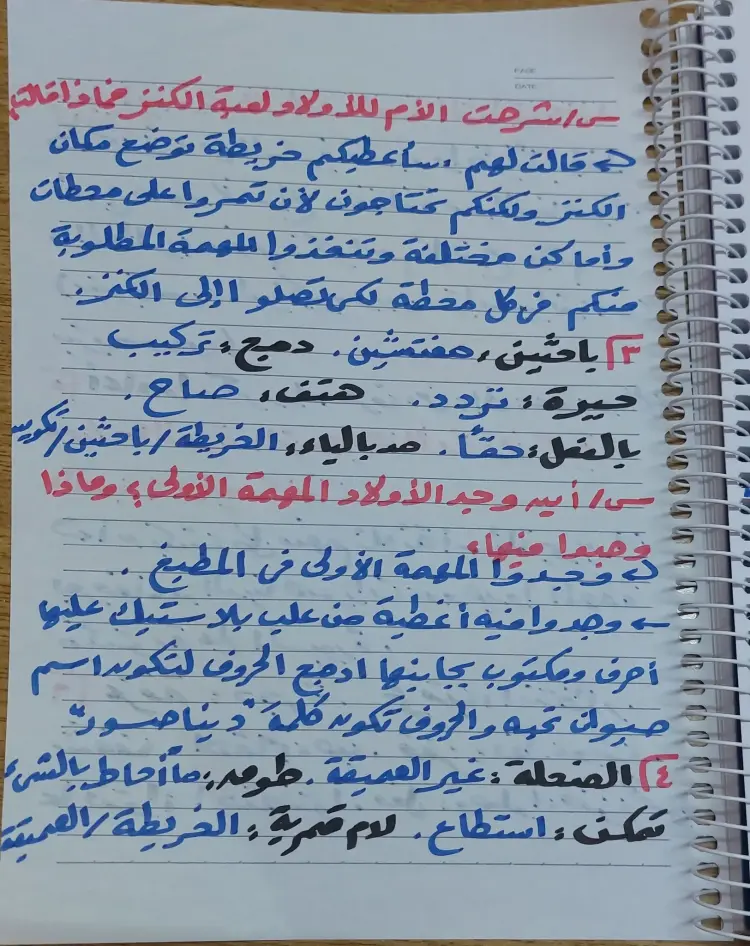 PAGE
DATE
س/ شرحت الأم للأولاد لعبة الكنز فماذا قالت؟
قالت لهم سأعطيكم خريطة توضع مكان
الكنز ولكنكم تحتاجون لأن تمروا على محطات
وأماكن مختلفة وتنفذوا المهمة المطلوبة
منكم في كل محطة لكي تصلوا إلى الكنز.
٣) باحثين: مفتشين. دمج: تركيب
حيرة: تردد. هتف: صاح.
بالفعل: حقًا. مد بالياء: الخريطة/ باحثين/ تكوين
س/ أين وجد الأولاد المهمة الأولى؟ وماذا
وجدوا فيها؟
وجدوا المهمة الأولى في المطبخ.
← وجدوا فيه أغطية من علب بلاستيك عليها
أحرف ومكتوب بجانبها ادمج الحروف لتكوين اسم
حيوان تحبه والحروف تكون كلمة "ديناصور"
٤) الضحلة: غير العميقة. طوق: ما أحاط بالشيء
تمكن: استطاع. لام قمرية: الخريطة/ العميقة